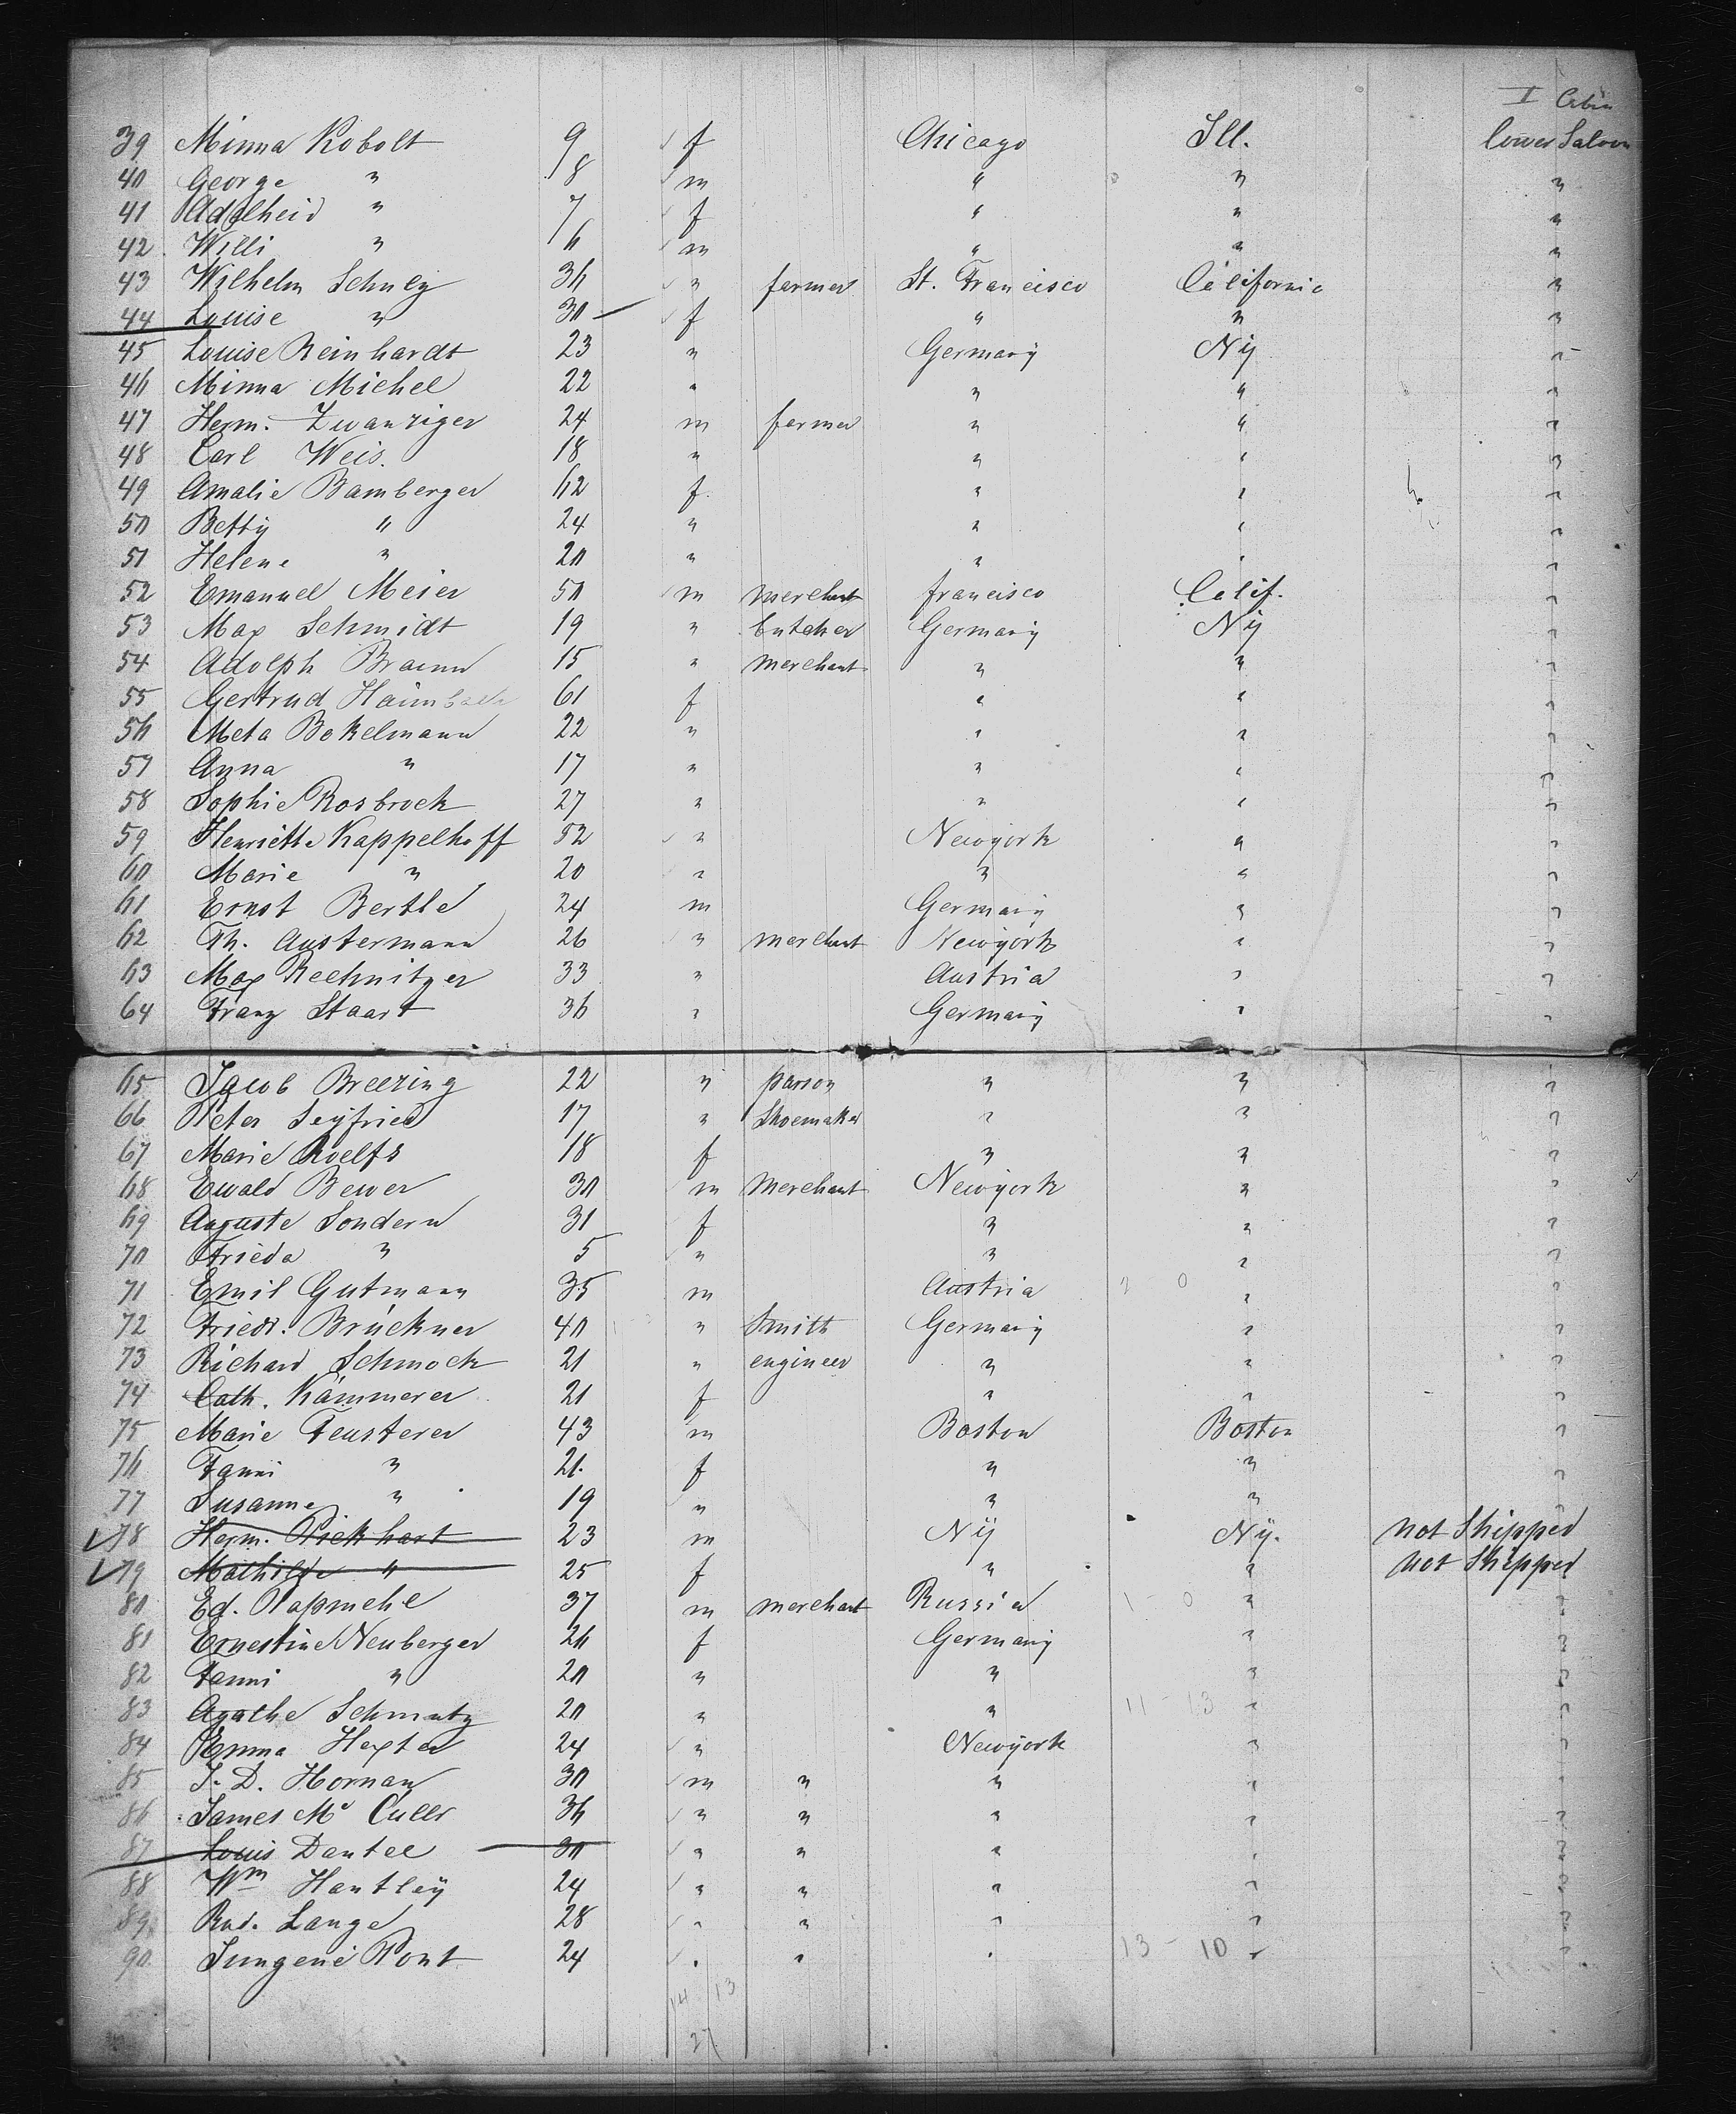 I Cabin
39 Minna Kobolt 9 f Chicago Ill. lower Saloon
40 George " 8 m " " "
41 Adelheid " 7 f " " "
42 Willi " 6 m " " "
43 Wilhelm 36 " farmer St. Francisco California "
44 Louise " 30 f " " "
45 Louise Reinhardt 23 " Germany Ny "
46 Minna Michel 22 " " " "
47 Herm. Zwanziger 24 m farmer " " "
48 Carl Weis. 18 " " " "
49 Amalie Bamberger 62 f. " " "
50 Betty " 24 " " " "
51 Helene " 20 " " " "
52 Emanuel Meier 50 m merchant francisco Calif. "
53 Max Schmidt 19 " butcher Germany Ny "
54 Adolph Braun 15 " merchant " " "
55 Gertrud 61 f " " "
56 Meta Bokelmann 22 " " " "
57 Anna " 17 " " " "
58 Sophie Rosbrock 27 " " " "
59 Henriette Kappelhoff 52 " Newyork " "
60 Marie " 20 " " " "
61 Ernst Bertle 24 m Germany " "
62 Th. Austermann 26 " merchant Newyork " "
63 Max Rechnitzer 33 " Austria " "
64 Franz Staart 36 " Germany " "
65 Jacob Breezing 22 " parson " " "
66 Peter Seyfried 17 " Shoemaker " " "
67 Marie Roelfs 18 f " " "
68 Ewald Bewer 30 m Merchant Newyork " "
69 Auguste Sondern 31 f " " "
70 Frieda " 5 " " " "
71 Emil Gutmann 35 m Austria " "
72 Friedr. Brückner 40 " Smith Germany " "
73 Richard Schmock 21 " engineer " " "
74 Cath. Kämmerer 21 f " " "
75 Marie Feusterer 43 m Boston Boston "
76 Fanni " 21. f " " "
77 Susanne " 19 " " " "
78 Herm. Pickhart 23 m Ny Ny. not Shipped
79 Mathilde " 25 f " " not Shipped
80 Ed. 37 m merchant Russia 1 - 0 " "
81 Ernestine Neuberger 26 f Germany " "
82 Fanni " 20 " " " "
83 Agathe Schmutz 20 " " 11 - 13 " "
84 Emma Hexter 24 " Newyork " "
85 J. D. Hornan 30 m " " " "
86 James Mc Cullr 36 " " " " "
87 Louis Dantel 30 " " " " "
88 Wm Hantley 24 " " " " "
89 Rud. Lange 28 " " " " "
90 Pont 24 " " " 13 - 10 " "
14 13
27